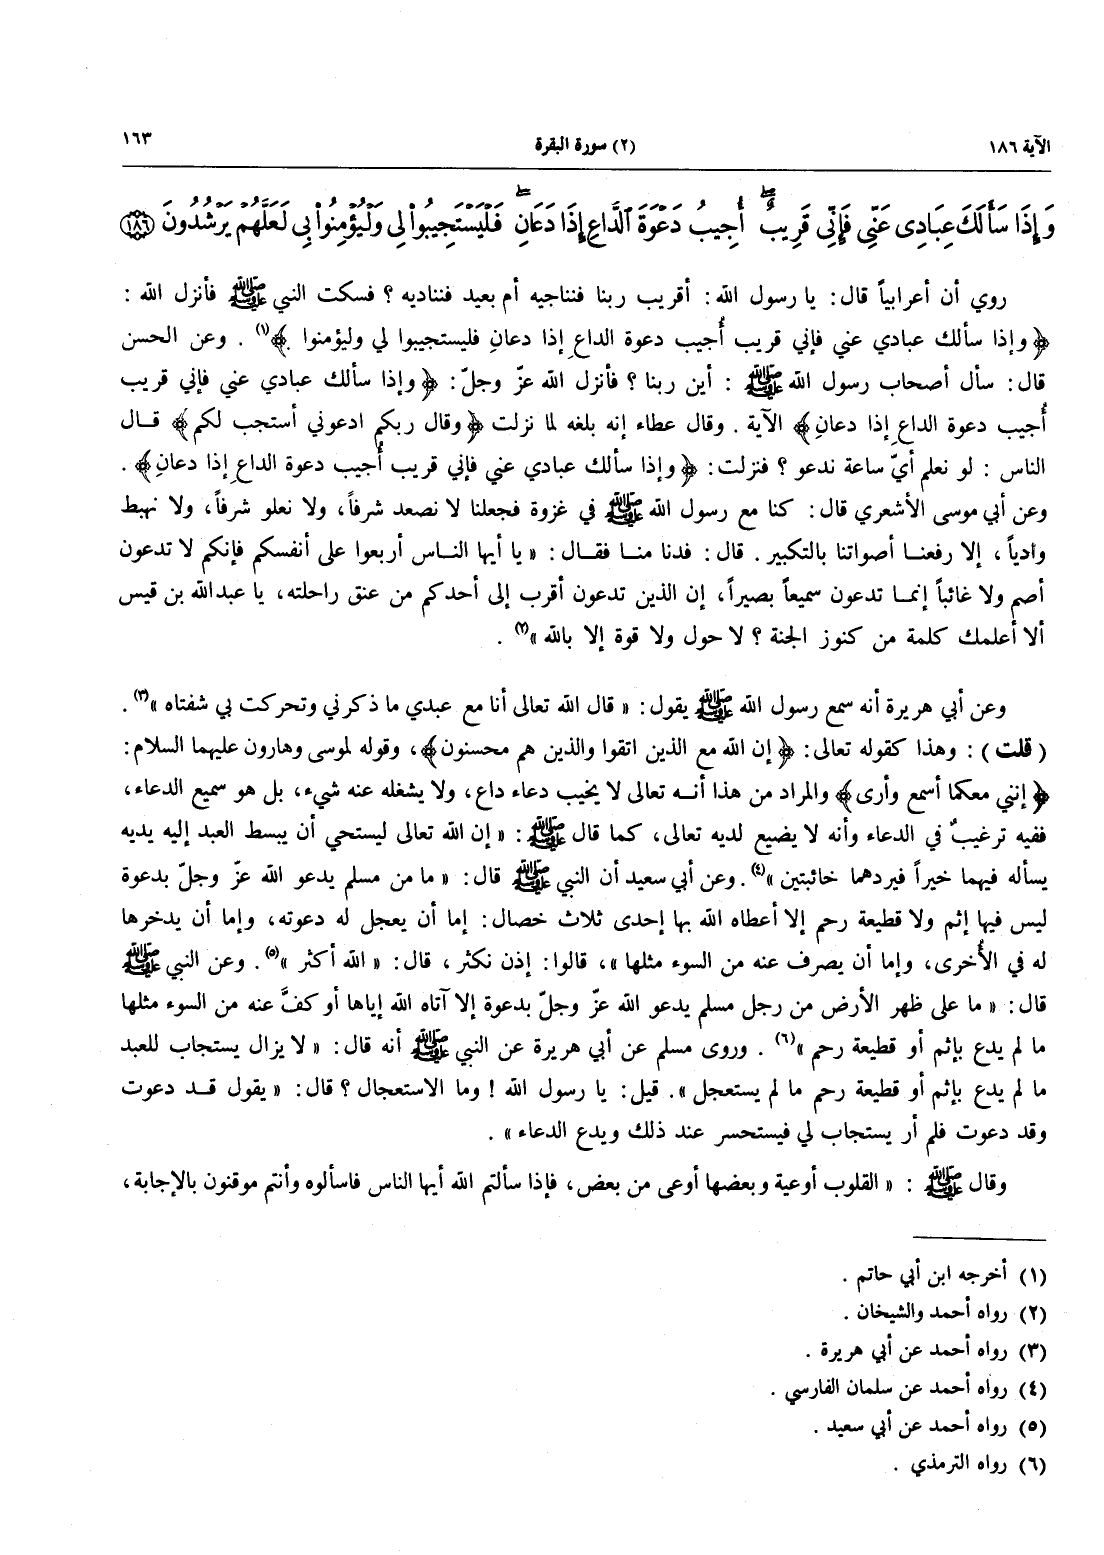 الآية ١٨٦ (٢) سورة البقرة ١٦٣
وَإِذَا سَأَلَكَ عِبَادِى عَنِّى فَإِنِّى قَرِيبٌ ۖ أُجِيبُ دَعْوَةَ ٱلدَّاعِ إِذَا دَعَانِ ۖ فَلْيَسْتَجِيبُوا۟ لِى وَلْيُؤْمِنُوا۟ بِى لَعَلَّهُمْ يَرْشُدُونَ ﴿١٨٦﴾
روي أن أعرابياً قال: يا رسول الله: أقريب ربنا فنناجيه أم بعيد فنناديه ؟ فسكت النبي ﷺ فأنزل الله :
﴿ وإذا سألك عبادي عني فإني قريب أُجيب دعوة الداعِ إذا دعانِ فليستجيبوا لي وليؤمنوا بي﴾(١) . وعن الحسن
قال: سأل أصحاب رسول الله ﷺ : أين ربنا ؟ فأنزل الله عزّ وجلّ: ﴿ وإذا سألك عبادي عني فإني قريب
أُجيب دعوة الداعِ إذا دعانِ﴾ الآية . وقال عطاء إنه بلغه لما نزلت ﴿وقال ربكم ادعوني أستجب لكم﴾ قـال
الناس : لو نعلم أيّ ساعة ندعو ؟ فنزلت: ﴿وإذا سألك عبادي عني فإني قريب أُجيب دعوة الداعِ إذا دعانِ﴾ .
وعن أبي موسى الأشعري قال: كنا مع رسول الله ﷺ في غزوة فجعلنا لا نصعد شرفاً، ولا نعلو شرفاً، ولا نهبط
وادياً ، إلا رفعنـا أصواتنا بالتكبير . قال: فدنا منـا فقـال: « يا أيها النـاس أربعوا على أنفسكم فإنكم لا تدعون
أصم ولا غائباً إنمـا تدعون سميعاً بصيراً، إن الذين تدعون أقرب إلى أحدكم من عنق راحلته، يا عبدالله بن قيس
ألا أعلمك كلمة من كنوز الجنة ؟ لا حول ولا قوة إلا بالله »(٢) .
وعن أبي هريرة أنه سمع رسول الله ﷺ يقول: « قال الله تعالى أنا مع عبدي ما ذكرني وتحركت بي شفتاه »(٣) .
( قلت ) : وهذا كقوله تعالى: ﴿ إن الله مع الذين اتقوا والذين هم محسنون﴾، وقوله لموسى وهارون عليهما السلام:
﴿ إنني معكما أسمع وأرى﴾ والمراد من هذا أنـه تعالى لا يخيب دعاء داع، ولا يشغله عنه شيء، بل هو سميع الدعاء،
ففيه ترغيبٌ في الدعاء وأنه لا يضيع لديه تعالى، كما قال ﷺ : « إن الله تعالى ليستحي أن يبسط العبد إليه يديه
يسأله فيهما خيراً فيردهما خائبتين »(٤). وعن أبي سعيد أن النبي ﷺ قال: « ما من مسلم يدعو الله عزّ وجلّ بدعوة
ليس فيها إثم ولا قطيعة رحم إلا أعطاه الله بها إحدى ثلاث خصال: إما أن يعجل له دعوته، وإما أن يدخرها
له في الأُخرى، وإما أن يصرف عنه من السوء مثلها »، قالوا: إذن نكثر ، قال: « الله أكثر »(٥). وعن النبي ﷺ
قال: « ما على ظهر الأرض من رجل مسلم يدعو الله عزّ وجلّ بدعوة إلا آتاه الله إياها أو كفَّ عنه من السوء مثلها
ما لم يدع بإثم أو قطيعة رحم »(٦) . وروى مسلم عن أبي هريرة عن النبي ﷺ أنه قال: « لا يزال يستجاب للعبد
ما لم يدع بإثم أو قطيعة رحم ما لم يستعجل ». قيل: يا رسول الله ! وما الاستعجال ؟ قال: « يقول قـد دعوت
وقد دعوت فلم أر يستجاب لي فيستحسر عند ذلك ويدع الدعاء» .
وقال ﷺ : « القلوب أوعية وبعضها أوعى من بعض، فإذا سألتم الله أيها الناس فاسألوه وأنتم موقنون بالإجابة،
(١) أخرجه ابن أبي حاتم .
(٢) رواه أحمد والشيخان .
(٣) رواه أحمد عن أبي هريرة .
(٤) رواه أحمد عن سلمان الفارسي .
(٥) رواه أحمد عن أبي سعيد .
(٦) رواه الترمذي .